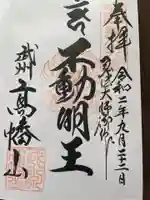 奉拝
令和二年九月二十二日
不動明王
武州
高幡山